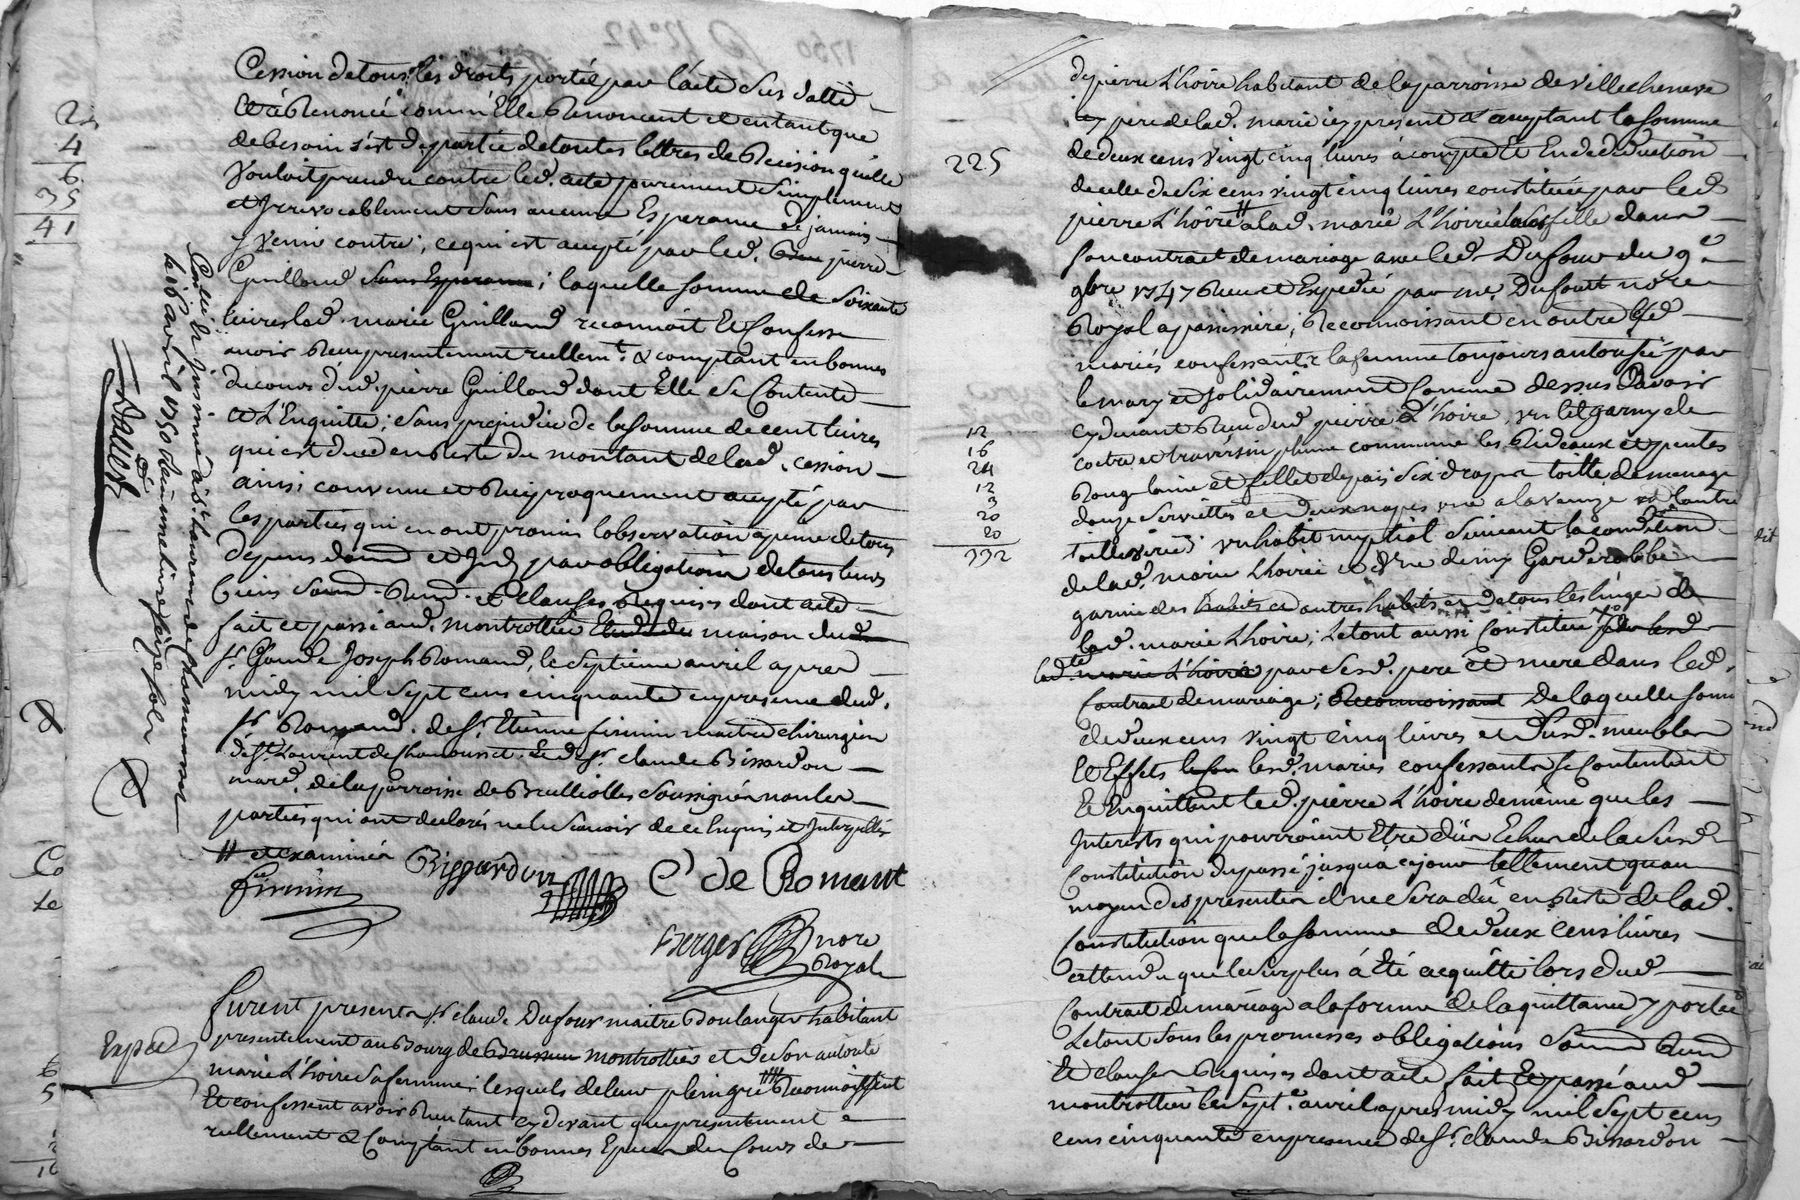 Cession de tous les droits portés par l'acte sus datté
Et à Renoncé comm'Elle Renoncent et entant que
de besoin s'est departie de toutes lettres de Recision qu'elle
Vouloit prendre contre led. acte purement simplement
et Irrevocablement sans aucune Esperance de jamais
y Venir contre; ce qui est accepté par led. pierre
Guilloud sans Esperance; laquelle somme de soixante
livres lad. marie Guilloud reconnoit Et Confesse
avoir Receu presentement reellemt. & comptant en bonnes
du cours dud. pierre Guilloud dont Elle se Contente
et L'Enquitte; sans prejudice de la somme de cent livres
qui est due en Reste du montant de lad. cession
ainsi convenu et Reciproquement accepté par
les parties qui en ont promis l'observation a peine de tous
depens dom. et Int. par obligation de tous leurs
biens Soum. Rend. et Clauses Requises dont acte
fait et passé aud. montrottier Etude de maison dud.
Sr. Claude Joseph Romand, le septieme avril apres
midy mil sept cens cinquante en presence dud.
Sr. Romand. de Sr. Etienne firmin maitre chirurgien
de St. Laurent de Chamousset, Et de Sr. claude Bissardon
mard. de la parroisse de Brulliolles soussignés non les
parties qui ont declarés ne le scavoir de ce Enquis et Interpellés
// et examiner
firmin
Bissardon
C' de Romant
Berger nore
Royal
Collé. la jus mué à St. Laurent de Chamousset
le 16 avril 1750
seize sols
41
Exped
furent presents Sr. claude Dufour maitre Boulanger habitant
presentement au Bourg de Brussieu montrottier et de son autorité
marie L'hoire sa femme; lesquels de leur plein gré Reconnoissent
Et confessent avoir Receu tant cy devant que presentement
reellement & Comptant en bonnes Especes du Cours de
de pierre L'hoire habitant de la parroisse de Villechenève
pere de lad. marie icy present & acceptant la somme
225
de deux cens vingt cinq livres à compte Et En deduction
de celle de six cens vingt cinq livres constituée par led
pierre L'hoire // a lad. marie L'hoire sa fille dans
son contrat de mariage avec led. Dufour du 9e
9bre 1747 Receu et Expedié par me. Dufourt nore
Royal a passiniere; Reconnoissant en outre lesd
mariés confessants la femme toujours autorisée par
le mary et solidairement comme dessus D'avoir
cy devant Receu dud pierre L'hoire, un lit garny de
coetre et traversin plume commune les Rideaux et pentes
Rouge laine et fillet de pais; six draps toille de menage
douze serviettes et deux napes une a la Venize et l'autre
toille; un habit nuptial suivant la condition
de lad. marie L'hoire et Une demy Garderobbe
garnie des habits et autres habits et de tous les linges de
lad. marie L'hoire; Letout aussi Constitué par lesd
12
16
24
12
3
20
20
332
lad. marie L'hoire par sesd. pere et mere dans led.
Contrat de mariage; Reconnoissant De laquelle somme
de deux cens vingt cinq livres et Susd. meubles
Et Effets lesd. mariés confessants se Contentent
& Enquittent led. pierre L'hoire de même que les
Interests qui pourroient Etre dûs Echus de la Susd
Constitution du passé jusqu'a ce jour tellement quau
moyen des presentes il ne sera dû en Reste de lad.
Constitution que la somme de deux cens livres
attendu que le surplus à Eté acquitté lors dud
Contrat de mariage a la forme de la quittance y portée
Letout sous les promesses obligations Soum Rend
Et clauses Requises dont acte fait Et passé aud
montrottier le Septe. avril apres midy mil sept cens
cens cinquante en presence de Sr. claude Bissardon